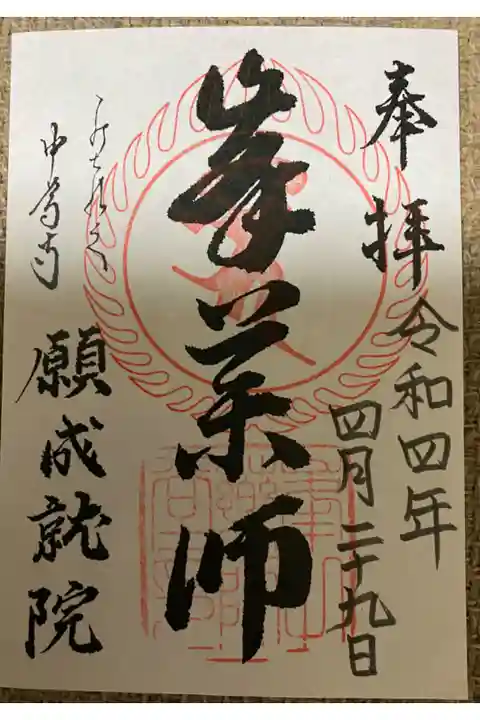 奉拝
令和四年
四月二十九日
峯薬師
中尊寺
願成就院